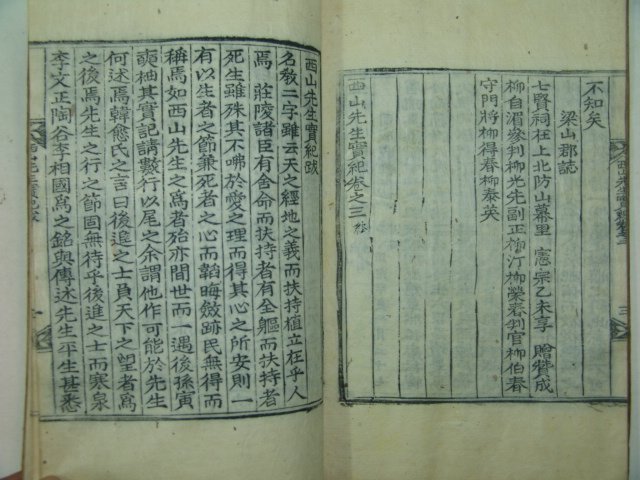 不知矣
梁山郡誌
七賢祠在上北防山幕里 憲宗乙未享 贈贊成
柳自湄 判柳光先副正柳汀柳榮春判官柳伯春
守門將柳得春柳泰英
西山先生實紀卷之三 終
西山先生實紀跋
名敎二字雖云天之經地之義而扶持植立在乎人
焉 莊陵諸臣有舍命而扶持者有全軀而扶持者
死生雖殊其不咈於愛之理而得其心之所安則一
有以生者之節兼死者之心而韜晦斂跡民無得而
稱焉如西山先生之爲者殆亦間世而一遇後孫寅
奭柚其實記請數行以尾之余謂他作可能於先生
何述焉韓愈氏之言曰後進之士負天下之望者爲
之後焉先生之行之節固無待乎後進之士而寒泉
李文正陶谷李相國爲之銘與傳述先生平生甚悉